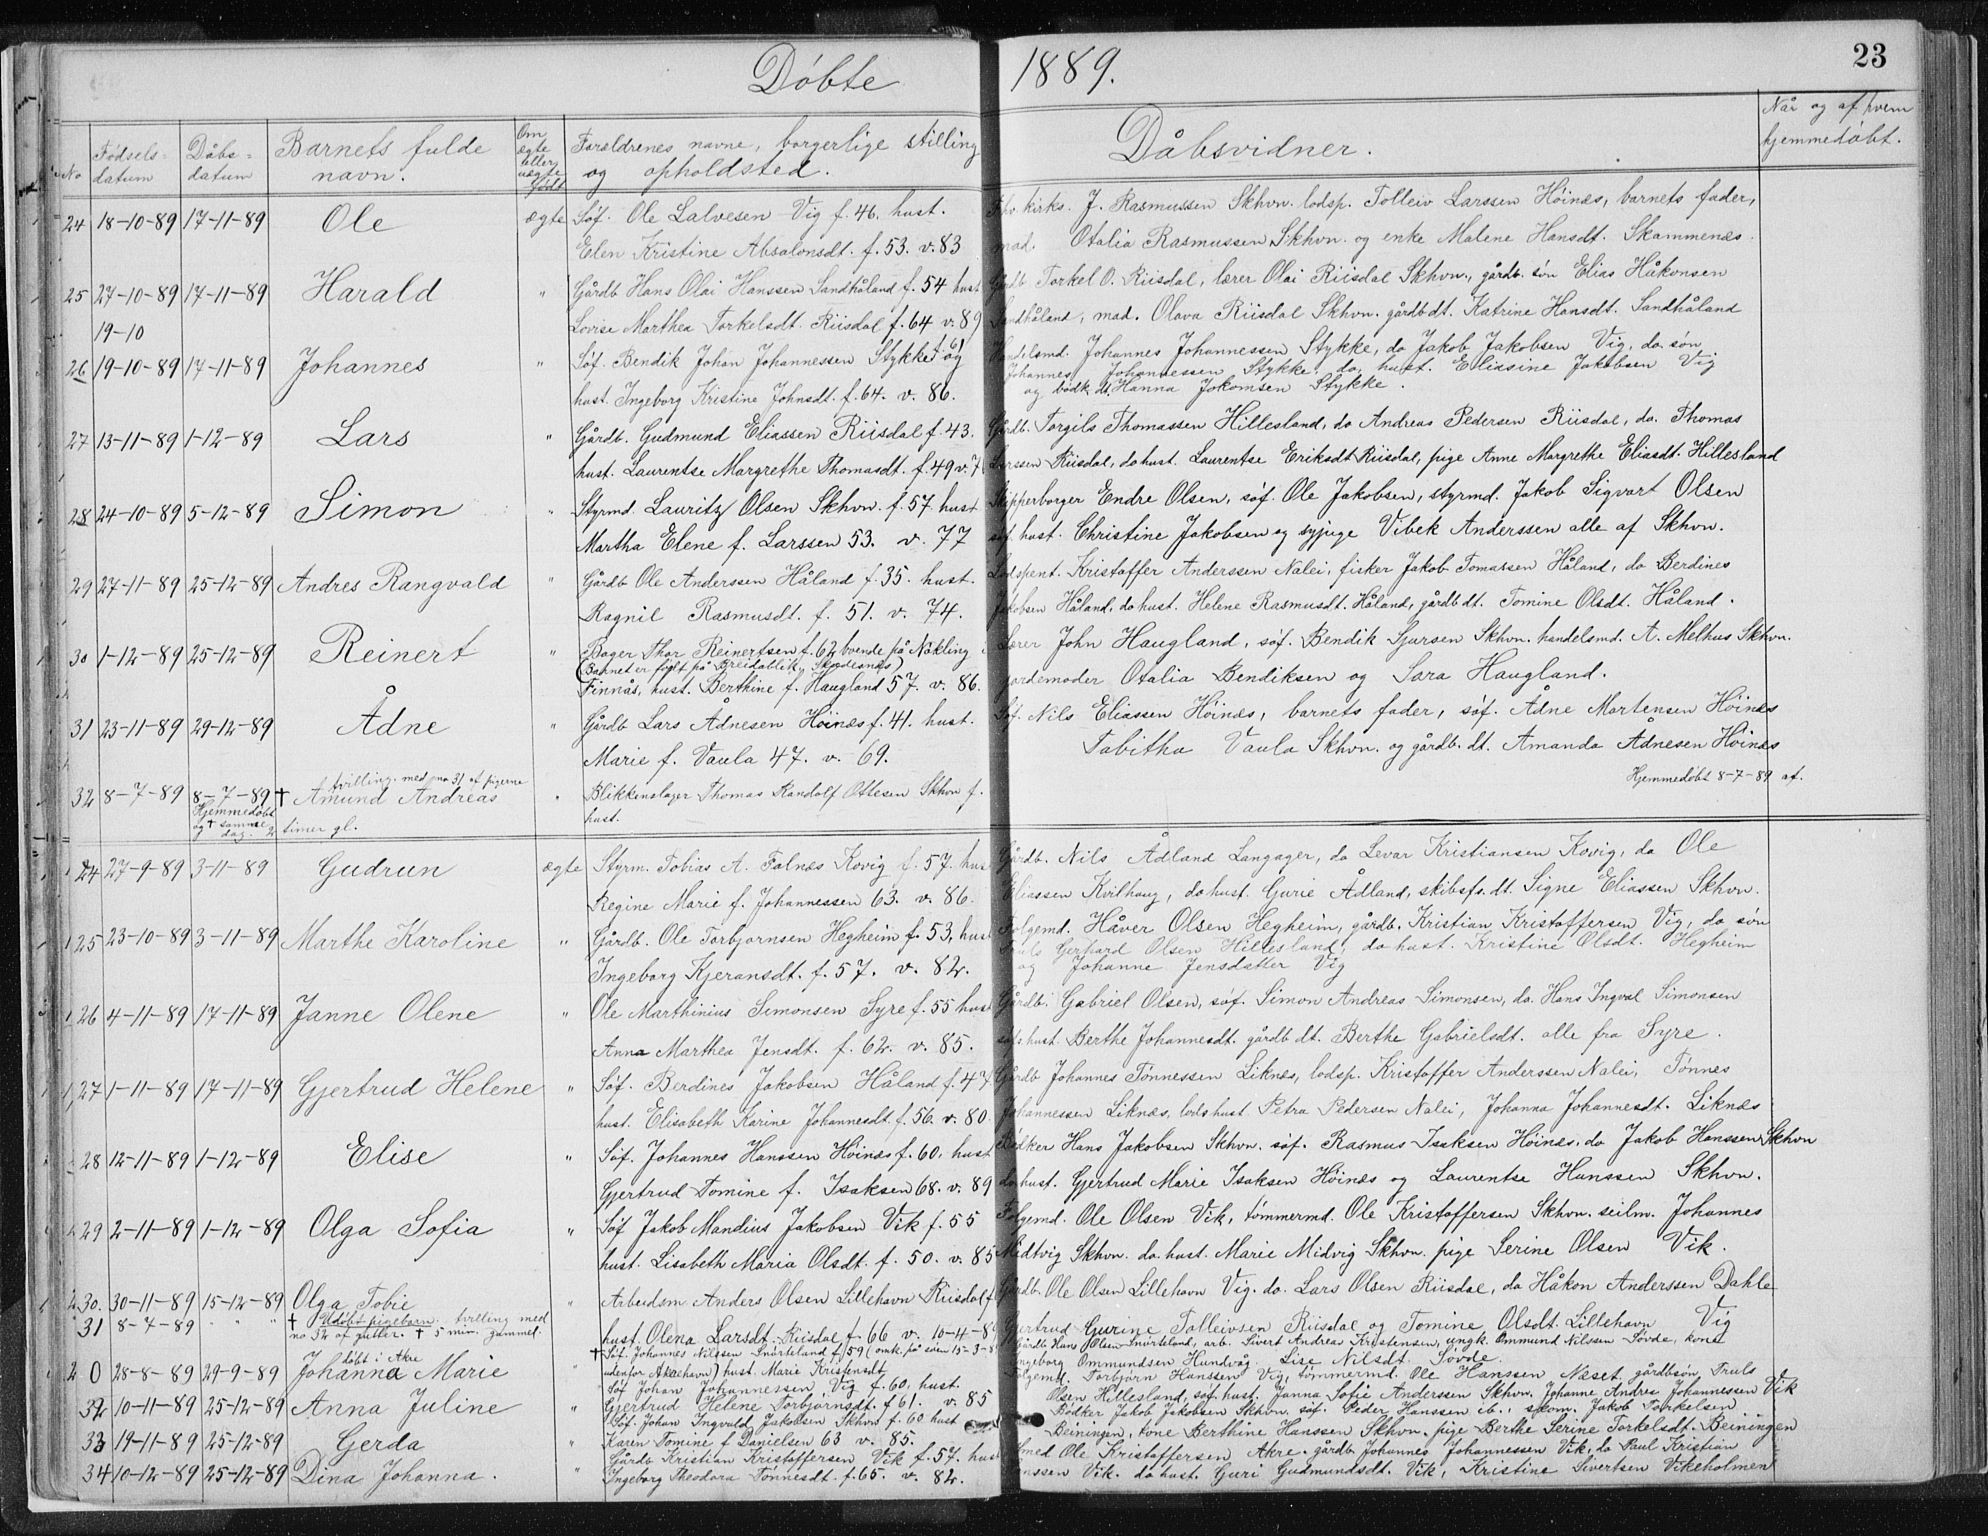 23
Døbte 1889.
No
Fødsels-datum
Dåbs-datum
Barnets fulde navn.
Om ægte eller uægte født
Forældrenes navne, borgerlige stilling og opholdsted.
Dåbsvidner.
Når og af hvem hjemmedøbt.
24 18-10-89 17-11-89 Ole ægte Søf. Ole Lalvesen Vig f. 46. hust. kirks. J. Rasmussen Skhvn. lodsp. Tolleiv Larssen Höinæs, barnets fader,
Elen Kristine Absalonsdt. f. 53. v. 83 mad. Otalia Rasmussen Skhvn. og enke Malene Hansdt. Skammenæs.
25 27-10-89 17-11-89 Harald " Gårdb Hans Olai Hanssen Sandhåland f. 54 hust Gårdb Torkel O. Riisdal, lærer Olai Riisdal Skhvn., gårdb. søn Elias Håkonsen
19-10 Lovise Marthea Torkelsdt. Riisdal f. 64 v. 89 Sandhåland, mad. Olava Riisdal Skhvn. gårdb dt. Katrine Hansdt. Sandhåland
26 19-10-89 17-11-89 Johannes " Søf. Bendik Johan Johannessen Stykke f 61 og Handelsmd. Johannes Johannessen Stykke, do Jakob Jakobsen Vig, do. søn
Johannes Johannessen Stykke, do, hust. Eliasine Jakobsen Vig
hust. Ingeborg Kristine Johnsdt. f. 64. v. 86. og bødk dt. Hanna Jokomsen Stykke.
27 13-11-89 1-12-89 Lars " Gårdb. Gudmund Eliassen Riisdal f. 43. Gårdb. Torgils Thomassen Hillesland, do Andreas Pedersen Riisdal, do. Thomas
hust. Laurentse Margrethe Thomasdt. f. 49 v. 7 Larssen Riisdal, do hust. Laurentse Eriksdt Riisdal, pige Anne Margrethe Eliasdt. Hillesland
28 24-10-89 5-12-89 Simon " Styrmd. Lauritz Olsen Skhvn. f. 57. hust Skipperborger Endre Olsen, søf. Ole Jakobsen, styrmd. Jakob Sigvart Olsen
Martha Elene f. Larssen 53. v. 77 søf. hust. Christine Jakobsen og sypige Vibek Anderssen alle af Skhvn.
29 27-11-89 25-12-89 Andres Rangvald " Gårdb Ole Anderssen Håland f. 35. hust. Lodspent. Kristoffer Anderssen Nalei, fisker Jakob Tomassen Håland, do Berdines
Ragnil Rasmusdt. f. 51. v. 74. Jakobsen Håland, do hust. Helene Rasmusdt. Håland, gårdb dt. Tomine Olsdt. Håland.
30 1-12-89 25-12-89 Reinert " Bager Thor Reinertsen f. 62 boende på Nökling i Lærer John Haugland, søf. Bendik Sjursen Skhvn. handelsmd. A. Melhus Skhvn.
(Barnet er født på Breidablik, Skudesnæs)
Finnås, hust. Berthine f. Haugland 57. v. 86. jordemoder Otalia Bendiksen og Sara Haugland.
31 23-11-89 29-12-89 Ådne " Gårdb Lars Ådnesen Höinæs f. 41. hust. Søf. Nils Eliassen Höinæs, barnets fader, søf. Ådne Mortensen Höinæs
Marie f. Vaula 47. v. 69. Tabitha Vaula Skhvn. og gårdb. dt. Amanda Ådnesen Höinæs
tvilling med no 31 af pigerne Hjemmedøbt 8-7-89 af.
32 8-7-89 8-7-89 † Amund Andreas " Blikkenslager Thomas Randolf Ottesen Skhvn f.
Hjemmedøbt og † samme dag. 2 timer gl. hust.
24 27-9-89 3-11-89 Gudrun ægte Styrm. Tobias A. Falnæs Kovig f. 57. hus Gårdb. Nils Ådland Langager, do Levar Kristiansen Kovig, do Ole
Regine Marie f. Johannessen 63. v. 86. Eliassen Kvilhaug, do hust. Gurie Ådland, skibsfs. dt. Signe Eliassen Skhvn.
25 23-10-89 3-11-89 Marthe Karoline " Gårdb. Ole Torbjørnsen Hegheim f. 53, hust Folgemd. Håver Olsen Hegheim, gårdb. Kristian Kristoffersen Vig, do søn
Gerhard Olsen Hillesland, do hust. Kristine Olsdt. Hegheim
Ingeborg Kjeransdt. f. 57. v. 82. og Johanne Jensdatter Vig
26 4-11-89 17-11-89 Janne Olene " Ole Marthinius Simonsen Syre f. 55 hust Gårdb. Gabriel Olsen, søf. Simon Andreas Simonsen, do. Hans Ingval Simonsen
Anna Marthea Jensdt. f. 62. v. 85. søfs hust. Berthe Johannesdt. gårdb dt. Berthe Gabrielsdt. alle fra Syre.
27 1-11-89 17-11-89 Gjertrud Helene " Søf. Berdines Jakobsen Håland f. 47. Gårdb Johannes Tönnessen Liknæs, lodsp. Kristoffer Anderssen Nalei, Tønnes
hust. Elisabeth Karine Johannesdt. f. 56. v. 80. Johannessen Liknæs, lods hust. Petra Pedersen Nalei, Johanna Johannesdt. Liknæs
28 12-11-89 1-12-89 Elise " Søf. Johannes Hanssen Höinæs f. 60, hust Bødker Hans Jakobsen Skhvn. søf. Rasmus Isaksen Höinæs. do Jakob Hanssen Skhvn
Gjertrud Tomine f. Isaksen 68. v. 89 do hust. Gjertrud Marie Isaksen Höinæs og Laurentse Hanssen Skhvn.
29 2-11-89 1-12-89 Olga Sofia " Søf Jakob Mandius Jakobsen Vik f. 55 Folgemd. Ole Olsen Vik, tømmermd. Ole Kristoffersen Skhvn. seilm. Johannes
hust. Lisabeth Maria Olsdt. f. 50. v. 85 Midtvig Skhvn. do hust. Marie Midvig Skhvn. pige Serine Olsen Vik.
30. 30-11-89 15-12-89 Olga Tobie " Arbeidsm. Anders Olsen Lillehavn Riisdal f Gårdb. Ole Olsen Lillehavn Vig. do. Lars Olsen Riisdal, do Håkon Anderssen Dahle
31 8-7-89 " " " † Udøbt pigebarn. tvilling med no 32 af gutter. † 5 min. gammel.
hust. Olena Larsdt. Riisdal f. 66 v. 10-4-89 Gjertrud Gurine Tolleivsen Riisdal og Tomine Olsdt. Lillehavn Vig
0 28-8-89 29-9-89 døbt i Akre Johanna Marie " † Søf. Johannes Nilssen Snörteland f 59 (omk. på søen 15-3-8 Gårdb Hans Olsen Snörteland, arb. Sivert Andreas Kristensen, ungk. Ommund Nilssen Søvde, kone
udenfor Akrehavn) hust. Marie Kristensdt Ingeborg Ommundsen Hundvåg. Lise Nilsdt. Søvde.
32 10-11-89 25-12-89 Anna Juline " Søf Johan Johannessen Vig f. 60. hust. Folgemd. Torbjørn Hanssen Vig, tømmermd. Ole Hansen Næset, gårdbsøn Truls
Gjertrud Helene Torbjørnsdt. f 61. v. 85 Olsen Hillesland, søf. hust. Janna Sofie Anderssen Skhvn. Johanne Andrea Johannessen Vik
33 19-11-89 25-12-89 Gerda " Søf. Johan Ingvald Jakobsen Skhvn f. 60 hust Bødker Jakob Jakobsen Skhvn. søf. Peder Hanssen ib., Jakob Torkelsen
Karen Tomine f Danielsen 63 v. 85. Beiningen, kone Berthine Hanssen Skhvn. pige Berthe Serine Torkelsdt. Beiningen
34 10-12-89 25-12-89 Dina Johanna. " Gårdb Kristian Kristoffersen Vik f. 57. hust Smed Ole Kristoffersen Akre. gårdb Johannes Johannessen Vik, do Paul Kristian
Ingeborg Theodora Tønnesdt. f. 65. v. 82. Vik. do hust. Guri Gudmundsdt. Vik, Kristine Sivertsen Vikeholmen